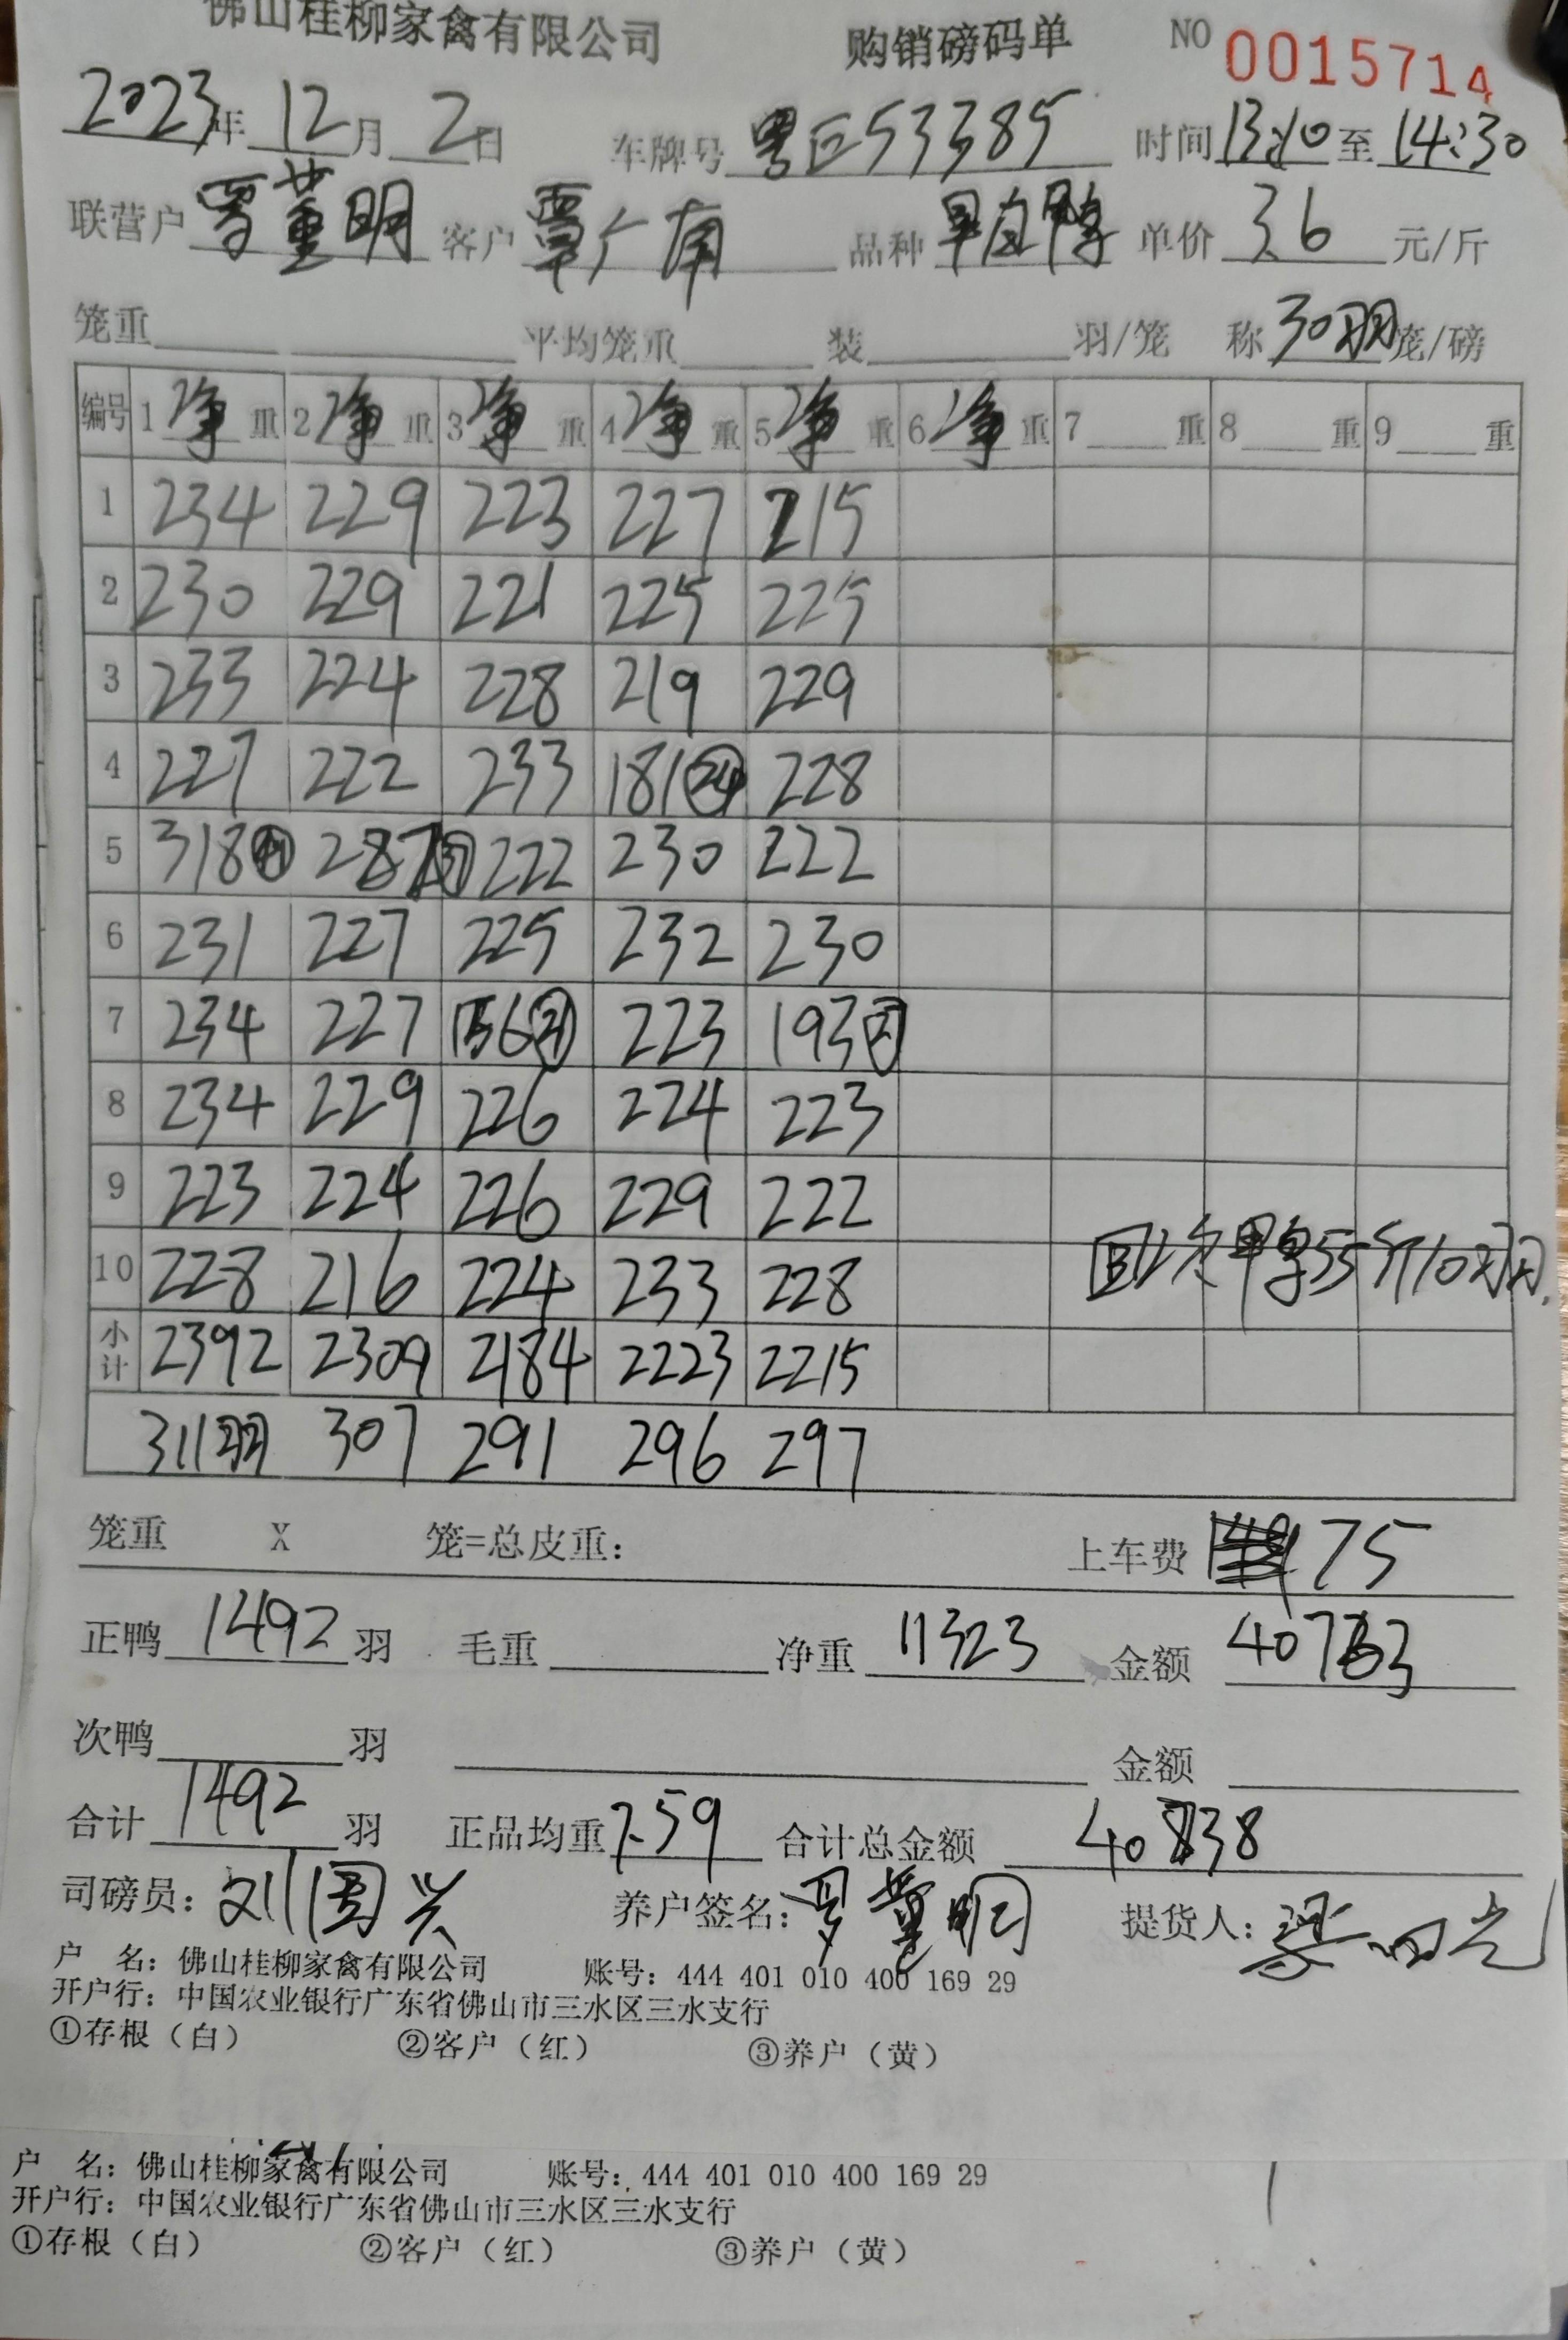 佛山桂柳家禽有限公司 购销磅码单 NO 0015714
2023年 12月 2日 车牌号 粤E53385 时间 13:10 至 14:30
联营户 罗董明 客户 覃广南 品种 单价 3.6 元/斤
笼重 平均笼重 装 羽/笼 称 30羽 笼/磅
编号 1 净 重 2 净 重 3 净 重 4 净 重 5 净 重 6 净 重 7 重 8 重 9 重
1 234 229 223 227 215
2 230 229 221 225 225
3 233 224 228 219 229
4 227 222 233 181 24 228
5 318 41 287 37 222 230 222
6 231 227 225 232 230
7 234 227 156 21 223 193 27
8 234 229 226 224 223
9 223 224 226 229 222
10 228 216 224 233 228
回次鸭55斤10羽
小计 2392 2309 2184 2223 2215
311羽 307 291 296 297
笼重 X 笼=总皮重: 上车费 75
正鸭 1492 羽 毛重 净重 11323 金额 40763
次鸭 羽 金额
合计 1492 羽 正品均重 7.59 合计总金额 40838
司磅员: 刘国兴 养户签名: 罗董明 提货人:
户 名: 佛山桂柳家禽有限公司 账号: 444 401 010 400 169 29
开户行: 中国农业银行广东省佛山市三水区三水支行
①存根（白） ②客户（红） ③养户（黄）
户 名: 佛山桂柳家禽有限公司 账号: 444 401 010 400 169 29
开户行: 中国农业银行广东省佛山市三水区三水支行
①存根（白） ②客户（红） ③养户（黄）